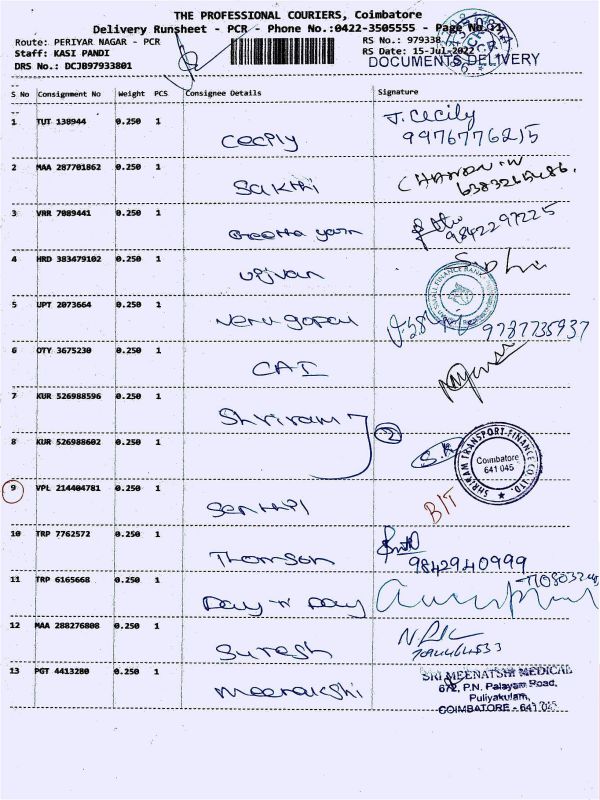 THE PROFESSIONAL COURIERS, Coimbatore
Delivery Runsheet - PCR - Phone No.:0422-3505555 - Page No.
Route: PERIYAR NAGAR - PCR RS No.: 979338
Staff: KASI PANDI RS Date: 15-Jul-2022
DRS No.: DCJ897933801 DOCUMENTS DELIVERY
S No Consignment No Weight PCS Consignee Details Signature
1 TUT 138944 0.250 1 Cecily J. Cecily
9976776215
2 MAA 287701862 0.250 1 Sakthi
3 VRR 7089441 0.250 1 Geetha yarn 9842297225
4 HRD 383479102 0.250 1 Ujjivan
SMALL FINANCE BANK
5 UPT 2073664 0.250 1 Venu gopal 9787735937
6 OTY 3675230 0.250 1 CAI
7 KUR 526988596 0.250 1 Shriram
2
8 KUR 526988602 0.250 1
SHRIRAM TRANSPORT FINANCE CO. LTD.
Coimbatore
641 045
9 VPL 214404781 0.250 1 Senthil BIT
10 TRP 7762572 0.250 1 Thomson 9842940999
11 TRP 6165668 0.250 1 Day n Day
12 MAA 288276808 0.250 1 Suresh
13 PGT 4413280 0.250 1 Meenakshi SRI MEENATSHI MEDICAL
672, P.N. Palayam Road,
Puliyakulam,
COIMBATORE - 641 045